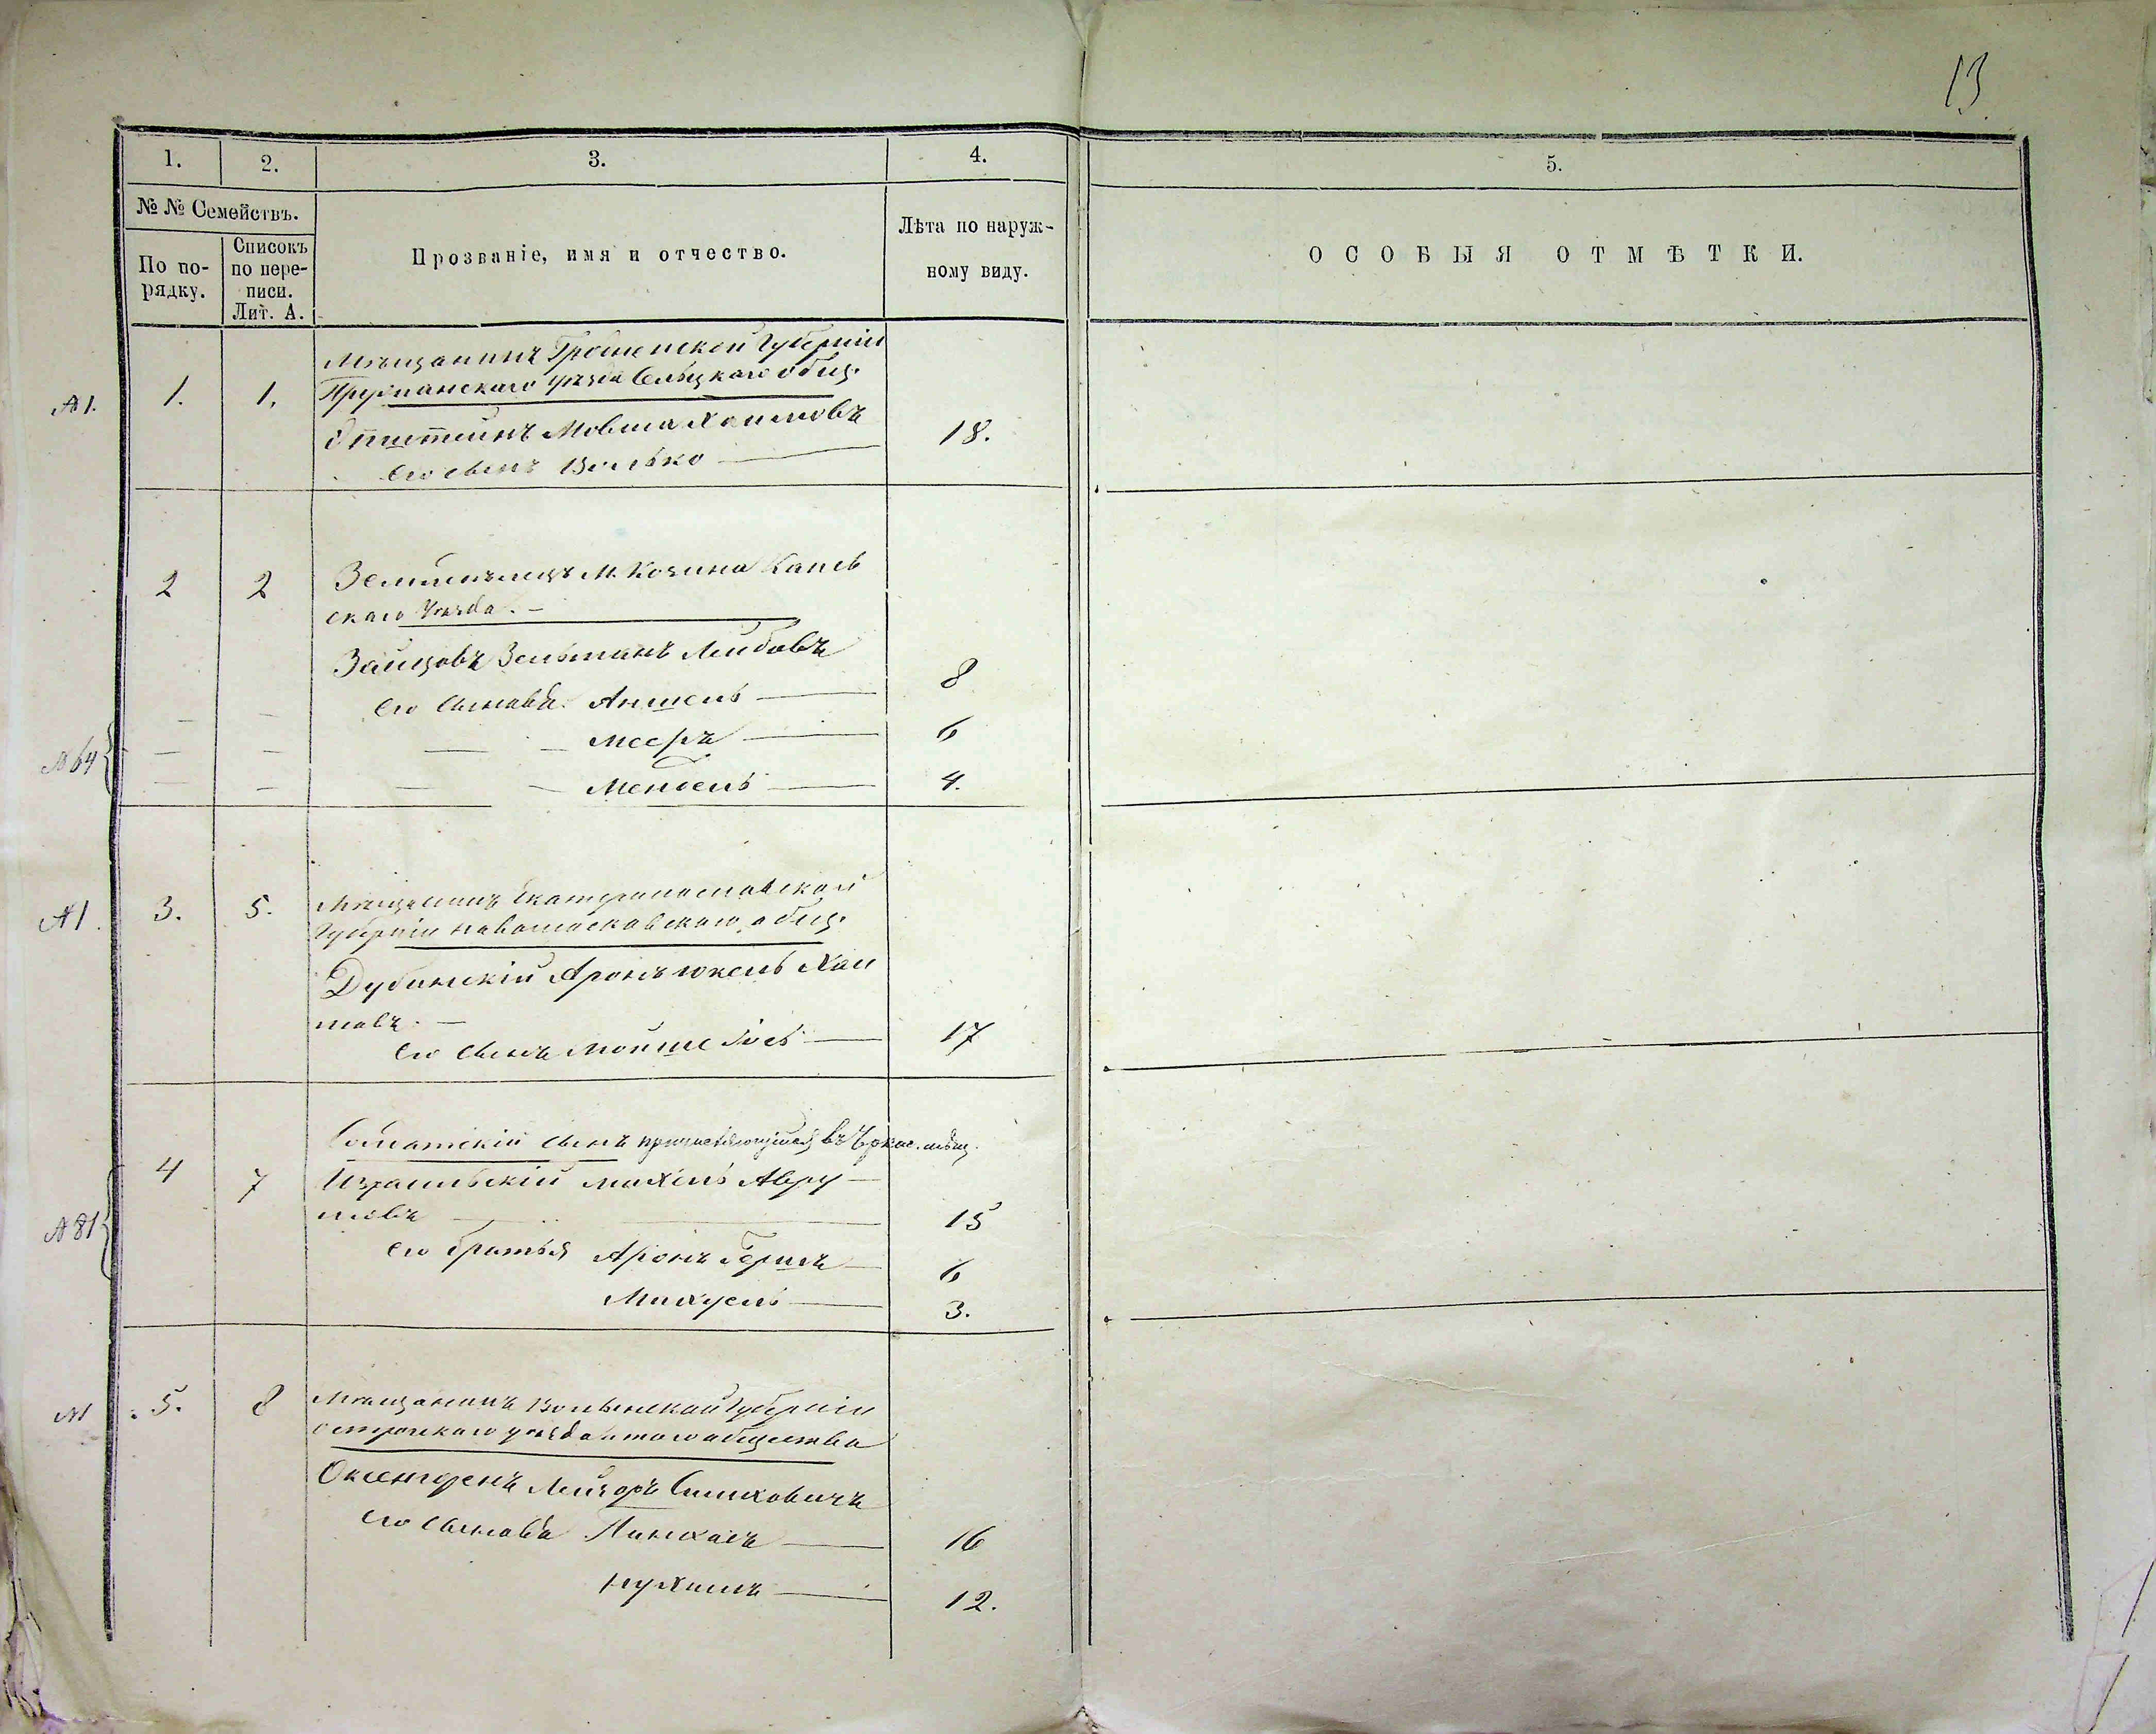 13
1. 2. 3. 4. 5.
№ № Семействъ.
По по-
рядку.
Списокъ
по пере-
писи.
Лит. А.
Прозваніе, имя и отчество.
Лѣта по наруж-
ному виду.
ОСОБЫЯ ОТМѢТКИ.
Мѣщанинъ Гродненской Губерніи
№1. 1. 1. Пружанскаго уѣзда Сельцкаго общ.
Эпштейнъ Мовша Хаимовъ
его сынъ Волько 18.
2 2 Земледѣлецъ М. Козина Канев
скаго Уѣзда.
Зайцовъ Зельманъ Лейбовъ
его сыновья Аншель 8
№64 Мееръ 6
Мендель 4.
№1. 3. 5. Мѣщанинъ Екатеринославской
Губерніи Новомосковскаго общ.
Дубинскій Аронъ Юкель Хаи
мовъ.
его сынъ Мойше 17
4 7 Солдатскій сынъ причисляющійся въ Черкас. мѣщ.
Израильскій Михель Авру
мовъ 15
№81 его братья Аронъ Гершъ 6
Михуель 3.
№1 5. 8 Мѣщанинъ Волынской Губерніи
Острожскаго уѣзда и того общества
Оксенгренъ Лейзоръ Симховичъ
его сыновья Пинхасъ 16
Нухимъ 12.